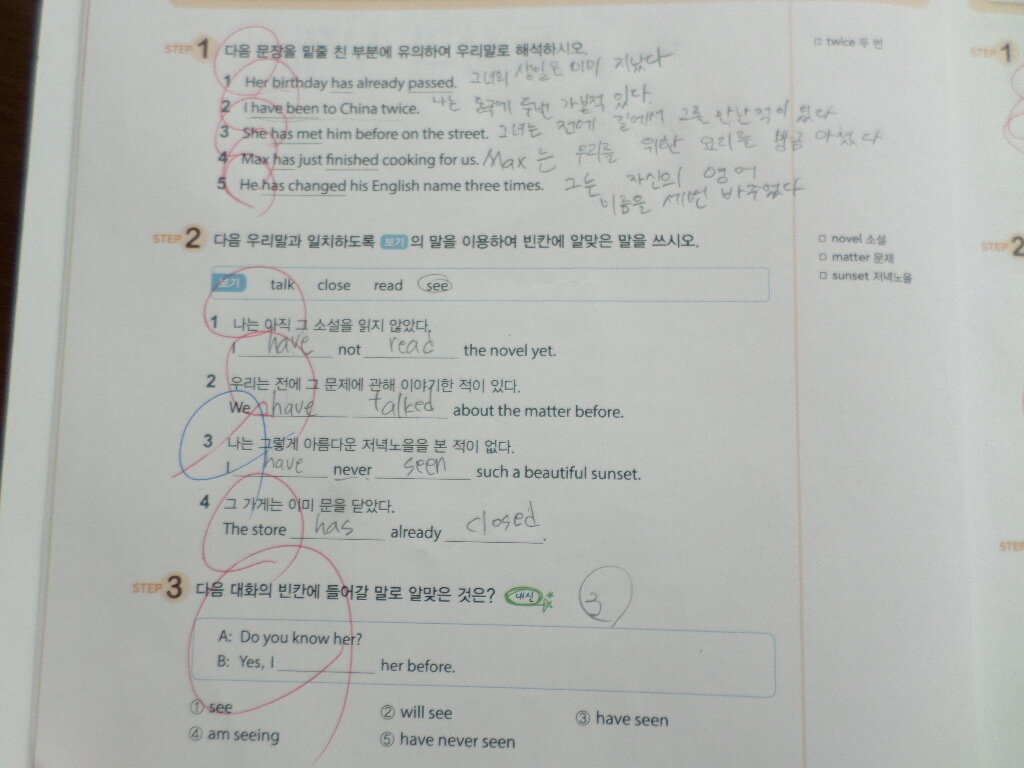 STEP 1 다음 문장을 밑줄 친 부분에 유의하여 우리말로 해석하시오.
1 Her birthday has already passed. 그녀의 생일은 이미 지났다
2 I have been to China twice. 나는 중국에 두번 가본적 있다.
3 She has met him before on the street. 그녀는 전에 길에서 그를 만난적이 있다
4 Max has just finished cooking for us. Max 는 우리를 위한 요리를 방금 마쳤다
5 He has changed his English name three times. 그는 자신의 영어
이름을 세번 바꾸었다
STEP 2 다음 우리말과 일치하도록 보기 의 말을 이용하여 빈칸에 알맞은 말을 쓰시오.
보기 talk close read see
1 나는 아직 그 소설을 읽지 않았다.
I have not read the novel yet.
2 우리는 전에 그 문제에 관해 이야기한 적이 있다.
We have talked about the matter before.
3 나는 그렇게 아름다운 저녁노을을 본 적이 없다.
I have never seen such a beautiful sunset.
4 그 가게는 이미 문을 닫았다.
The store has already closed.
STEP 3 다음 대화의 빈칸에 들어갈 말로 알맞은 것은? 내신 3
A: Do you know her?
B: Yes, I ________ her before.
① see ② will see ③ have seen
④ am seeing ⑤ have never seen
twice 두 번
novel 소설
matter 문제
sunset 저녁노을
STEP 1
STEP 2
STEP